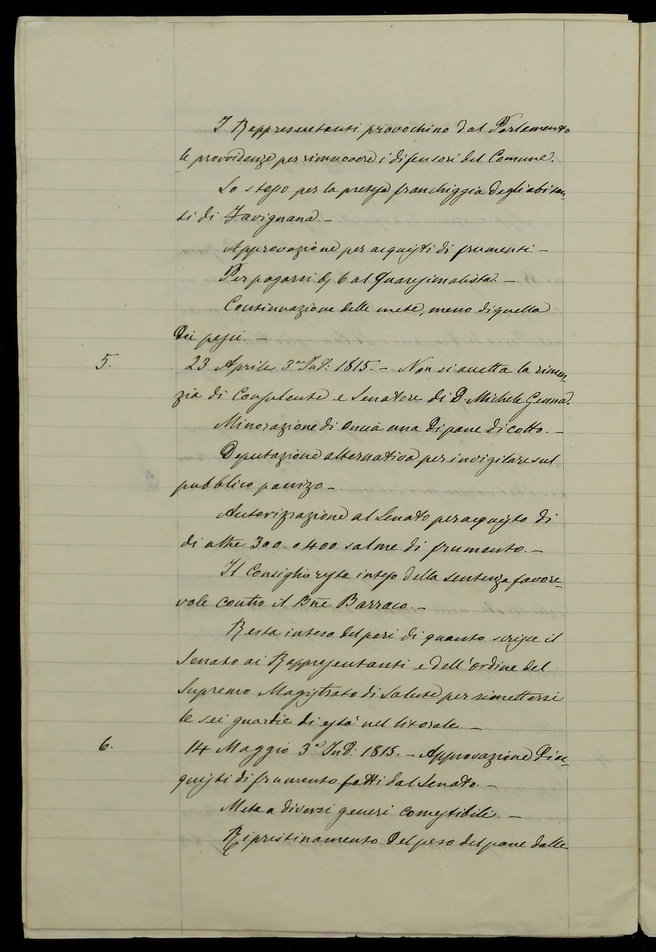 I Rappresentanti provochino dal Parlamento
le provvidenze per rimuovere i difensori del Comune.
Lo stesso per la pretesa franchiggia degli abitan-
ti di Favignana. –
Approvazione per acquisti di frumenti. –
Per pagarsi 6 al Quaresimalista. –
Continuazione delle mete, meno di quella
dei pesci. –
5. 23 Aprile 3ª Ind: 1815. – Non si accetta la rinun-
zia di Consulente e Senatore di D. Michele Genna.
Minorazione di oncia una di pane di cotto. –
Deputazione alternativa per invigilare sul
pubblico panizzo –
Autorizzazione al Senato per acquisto di
di altre 300 o 400 salme di frumento. –
Il Consiglio resta inteso della sentenza favore-
vole contro il Bne Barraco. –
Resta inteso del pari di quanto scrisse il
Senato ai Rappresentanti e dell'ordine del
Supremo Magistrato di Salute per rimettersi
le sei guardie di està nel litorale. –
6. 14 Maggio 3ª Ind: 1815. – Approvazione di ac-
quisti di frumento fatti dal Senato. –
Meta a diversi generi comestibile. –
Ripristinamento del peso del pane dalle